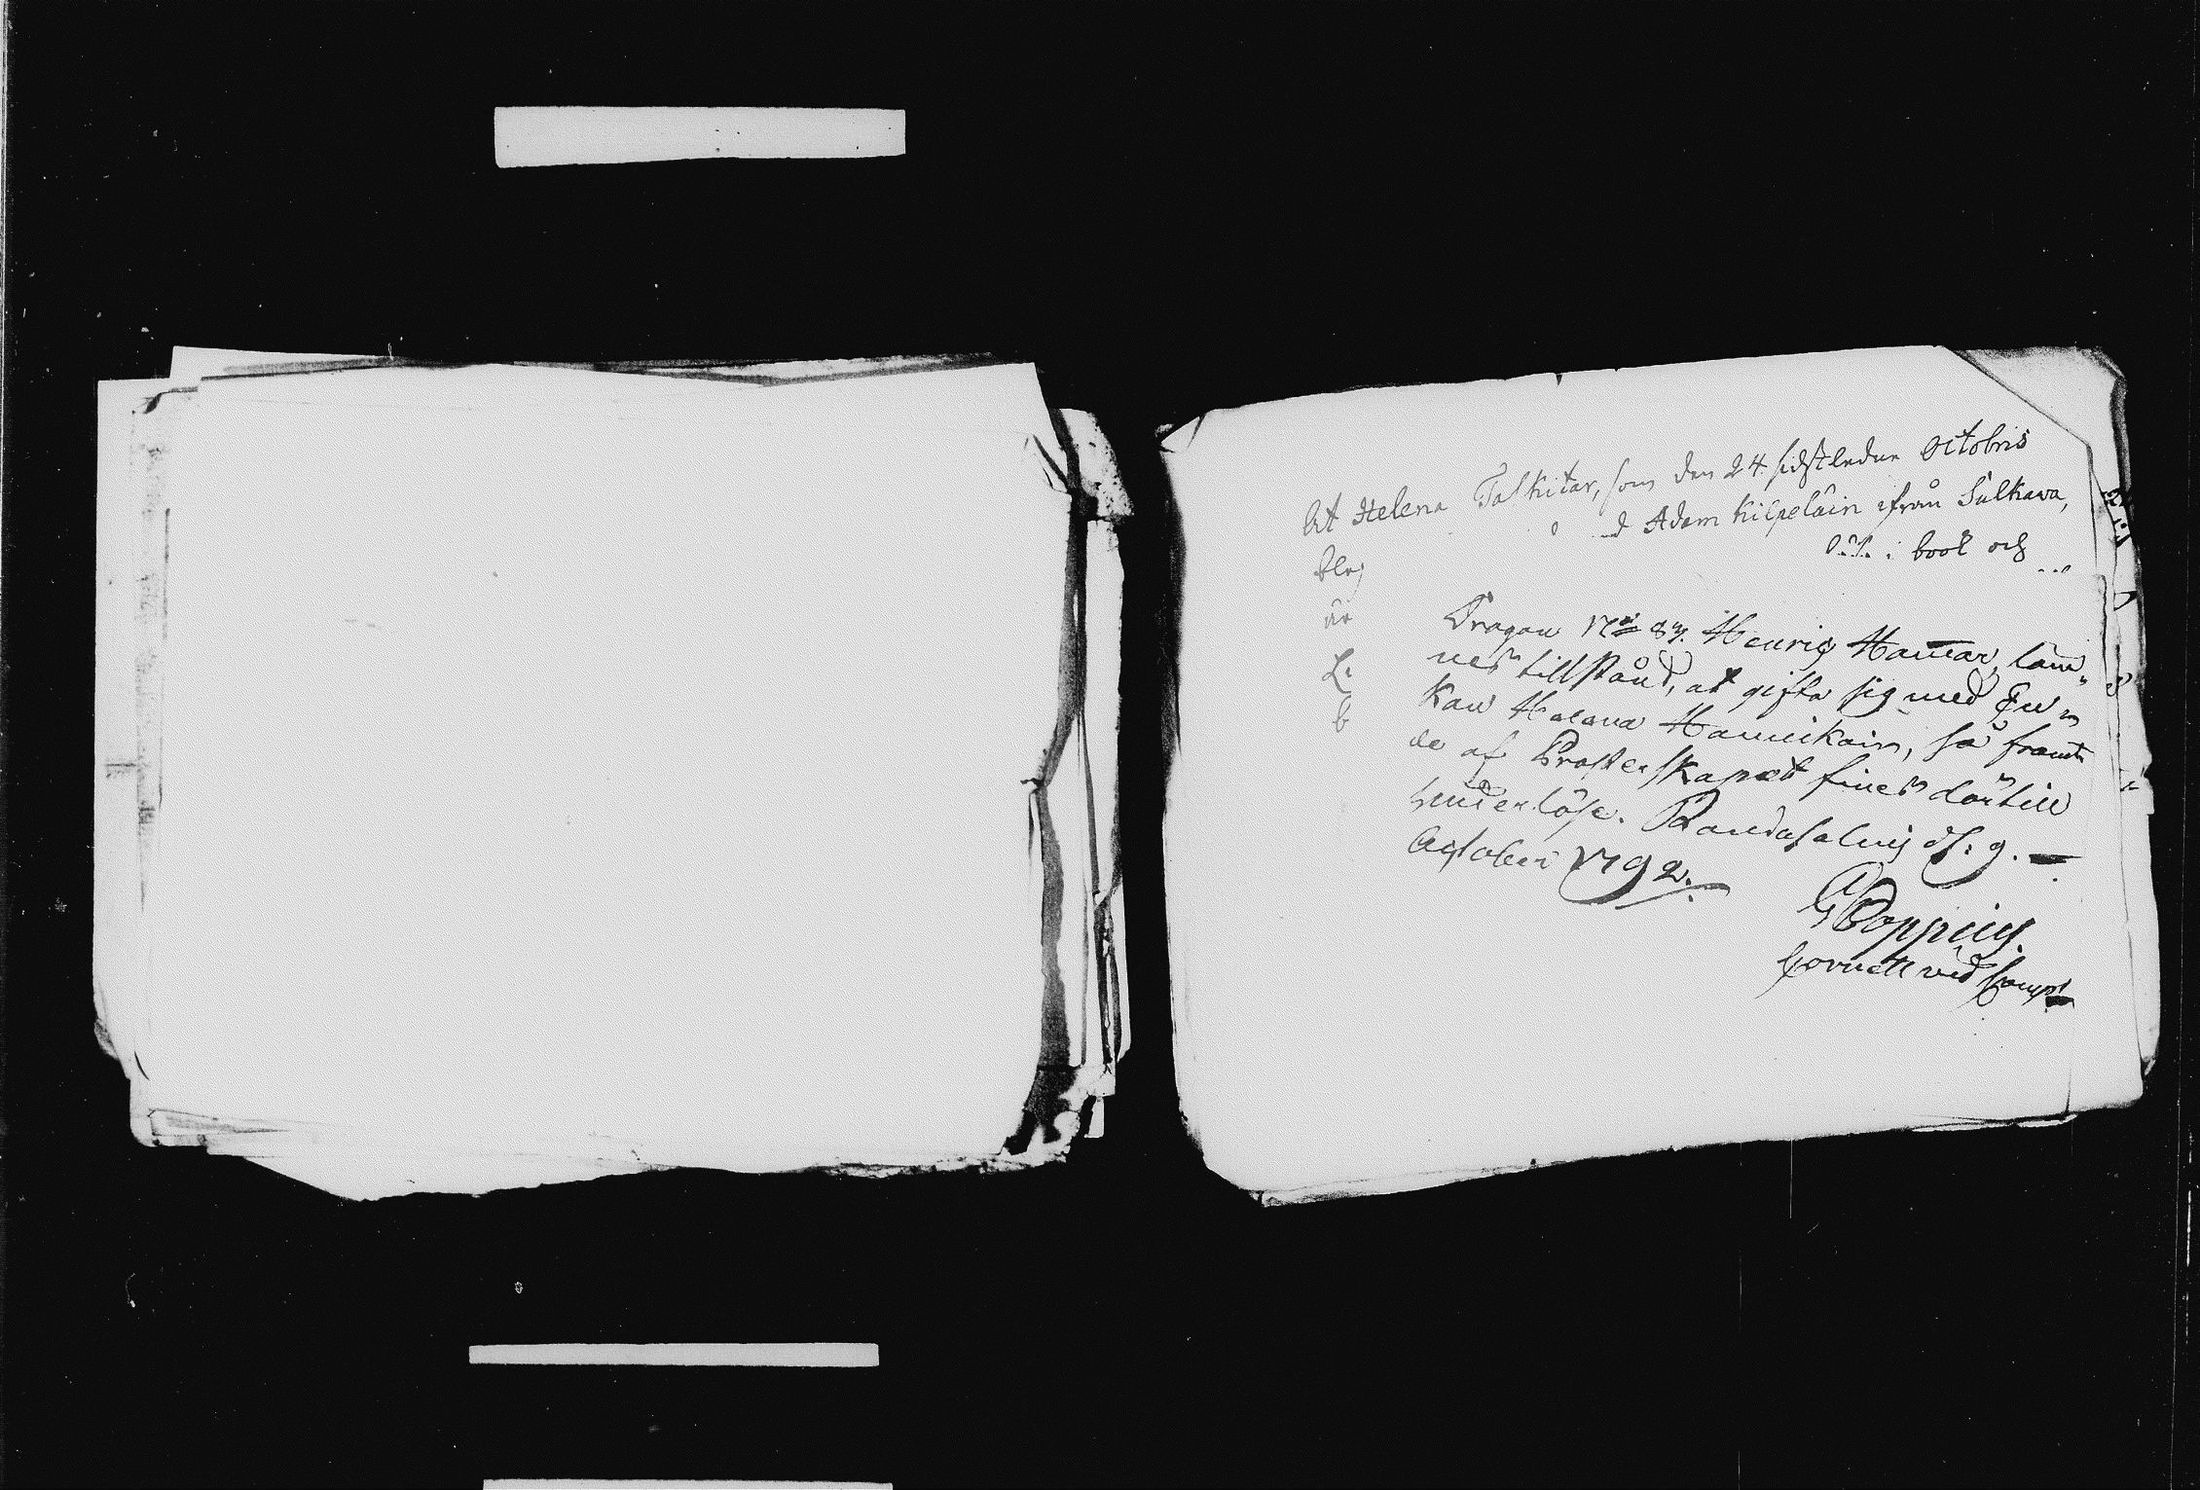 At Helena Taskitar, som den 24 sidstledne Octobris
blef
d Adam Kilpeläin ifrån Sulkava,
är
book och
Dragon No 89. Henrig Hamar, läm„
nes tillstånd, at gifta sig med En„
kan Halena Hannikain, så framt
de af Prosterskapet fines dertill
hinderlöse. Randasalmj d: 9.
October 1792.
GPoppius.
Cornett vid Comp: